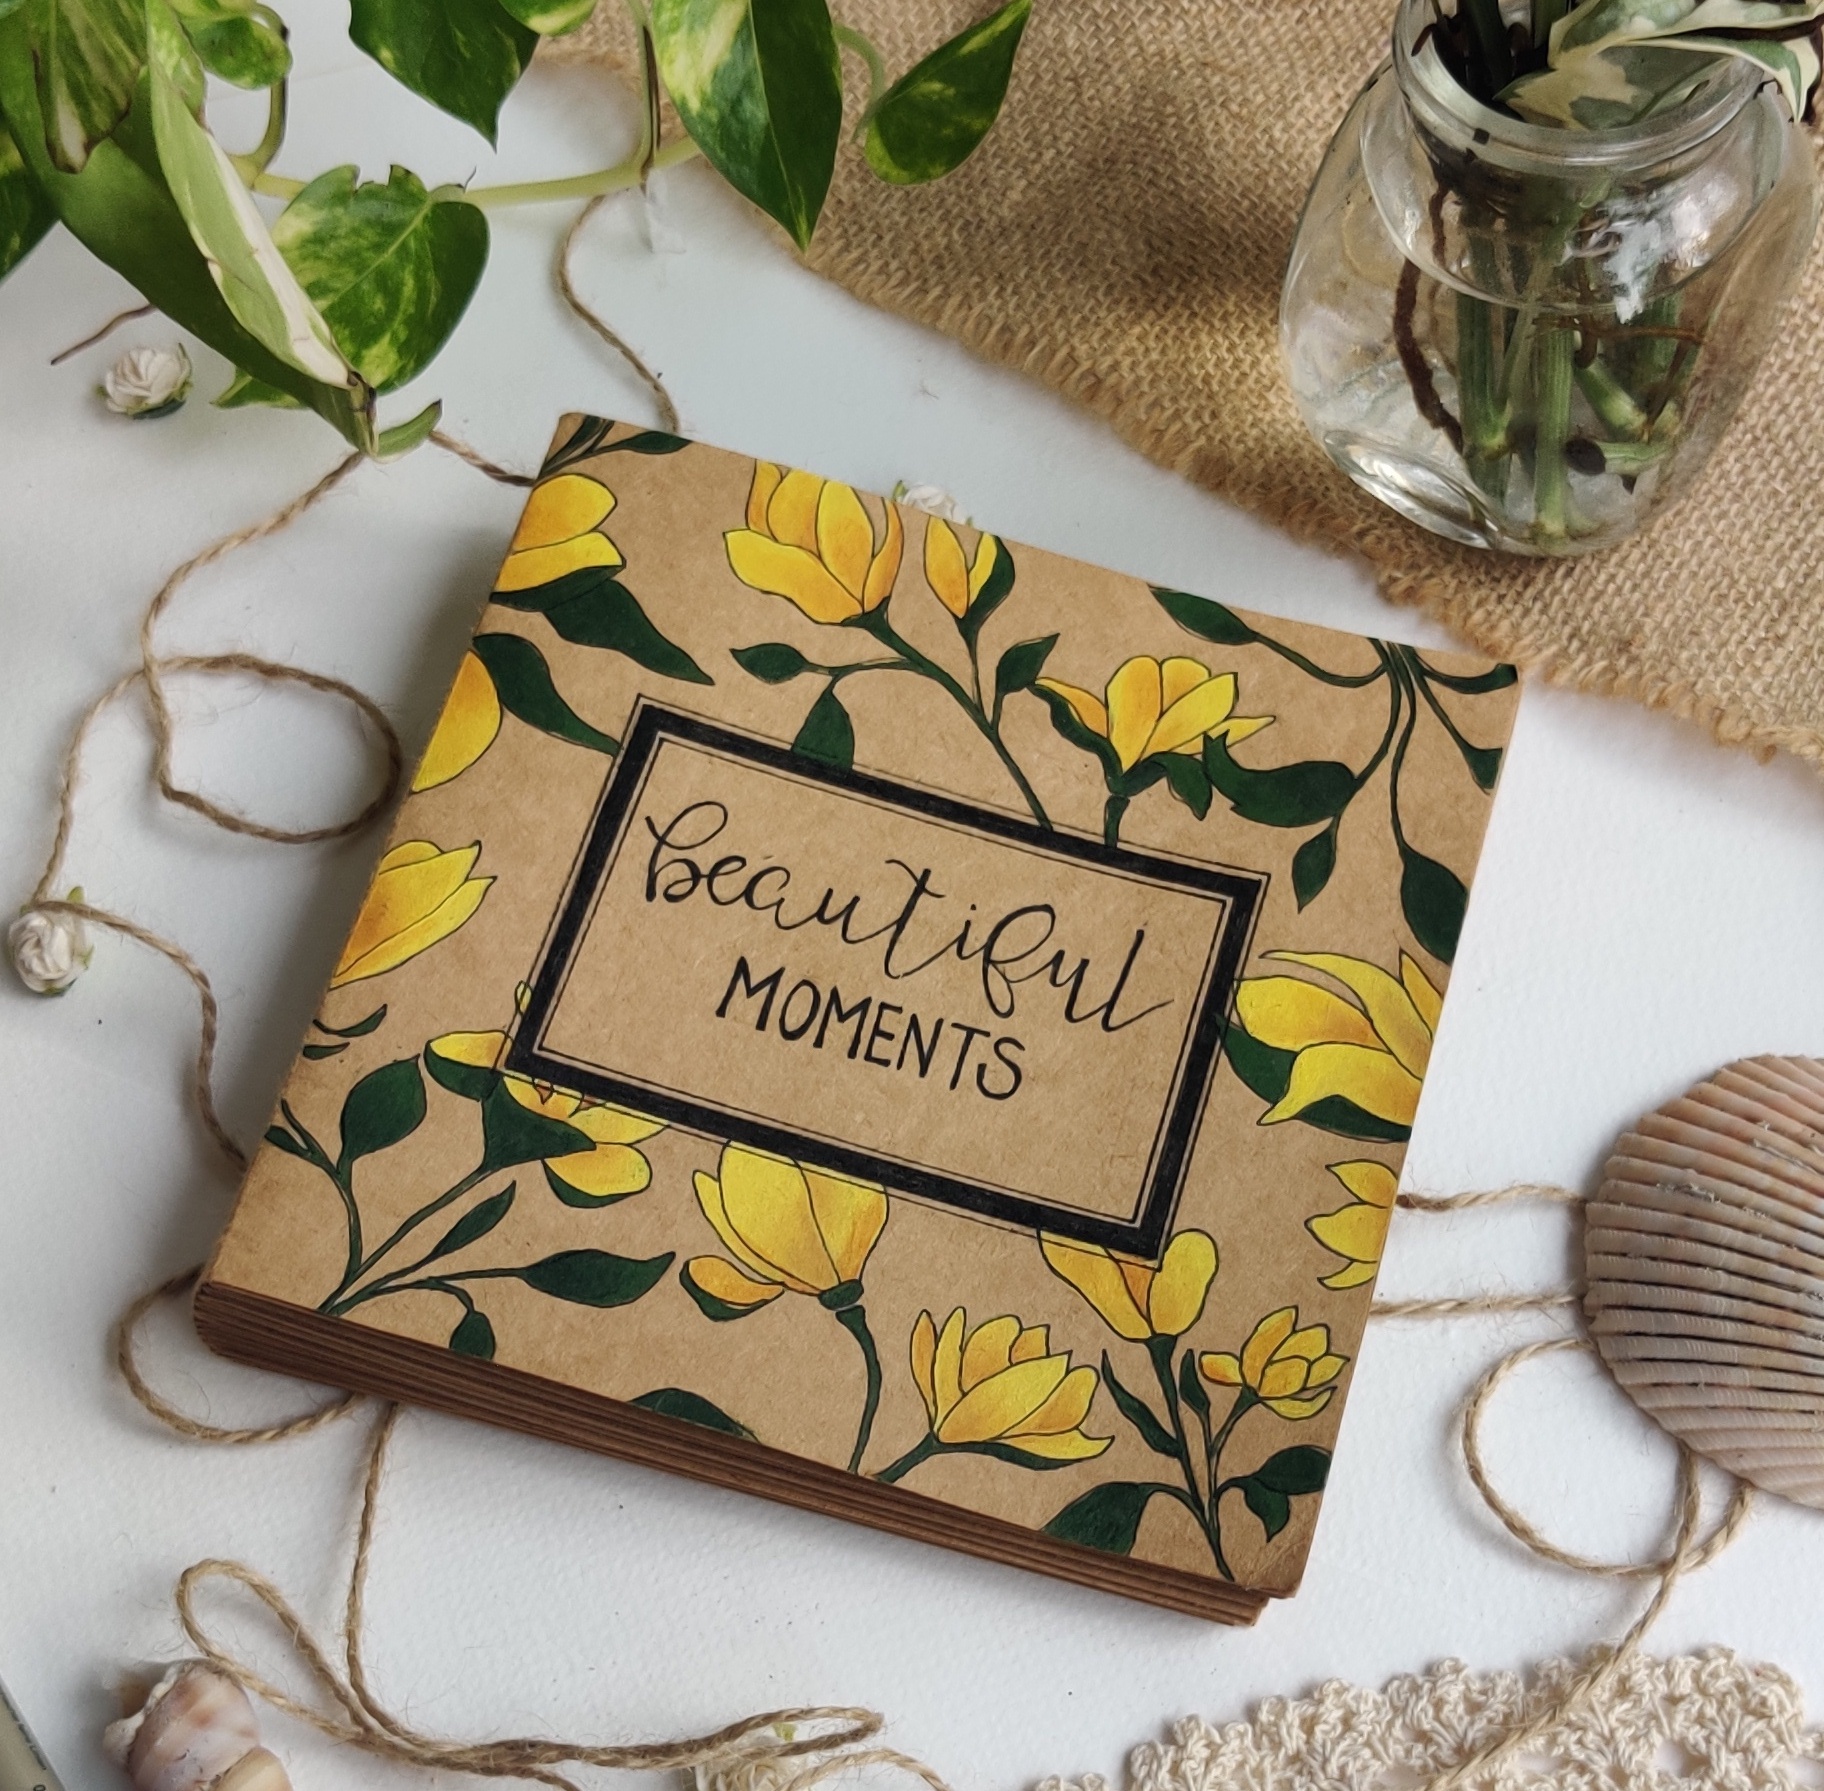 beautiful
MOMENTS